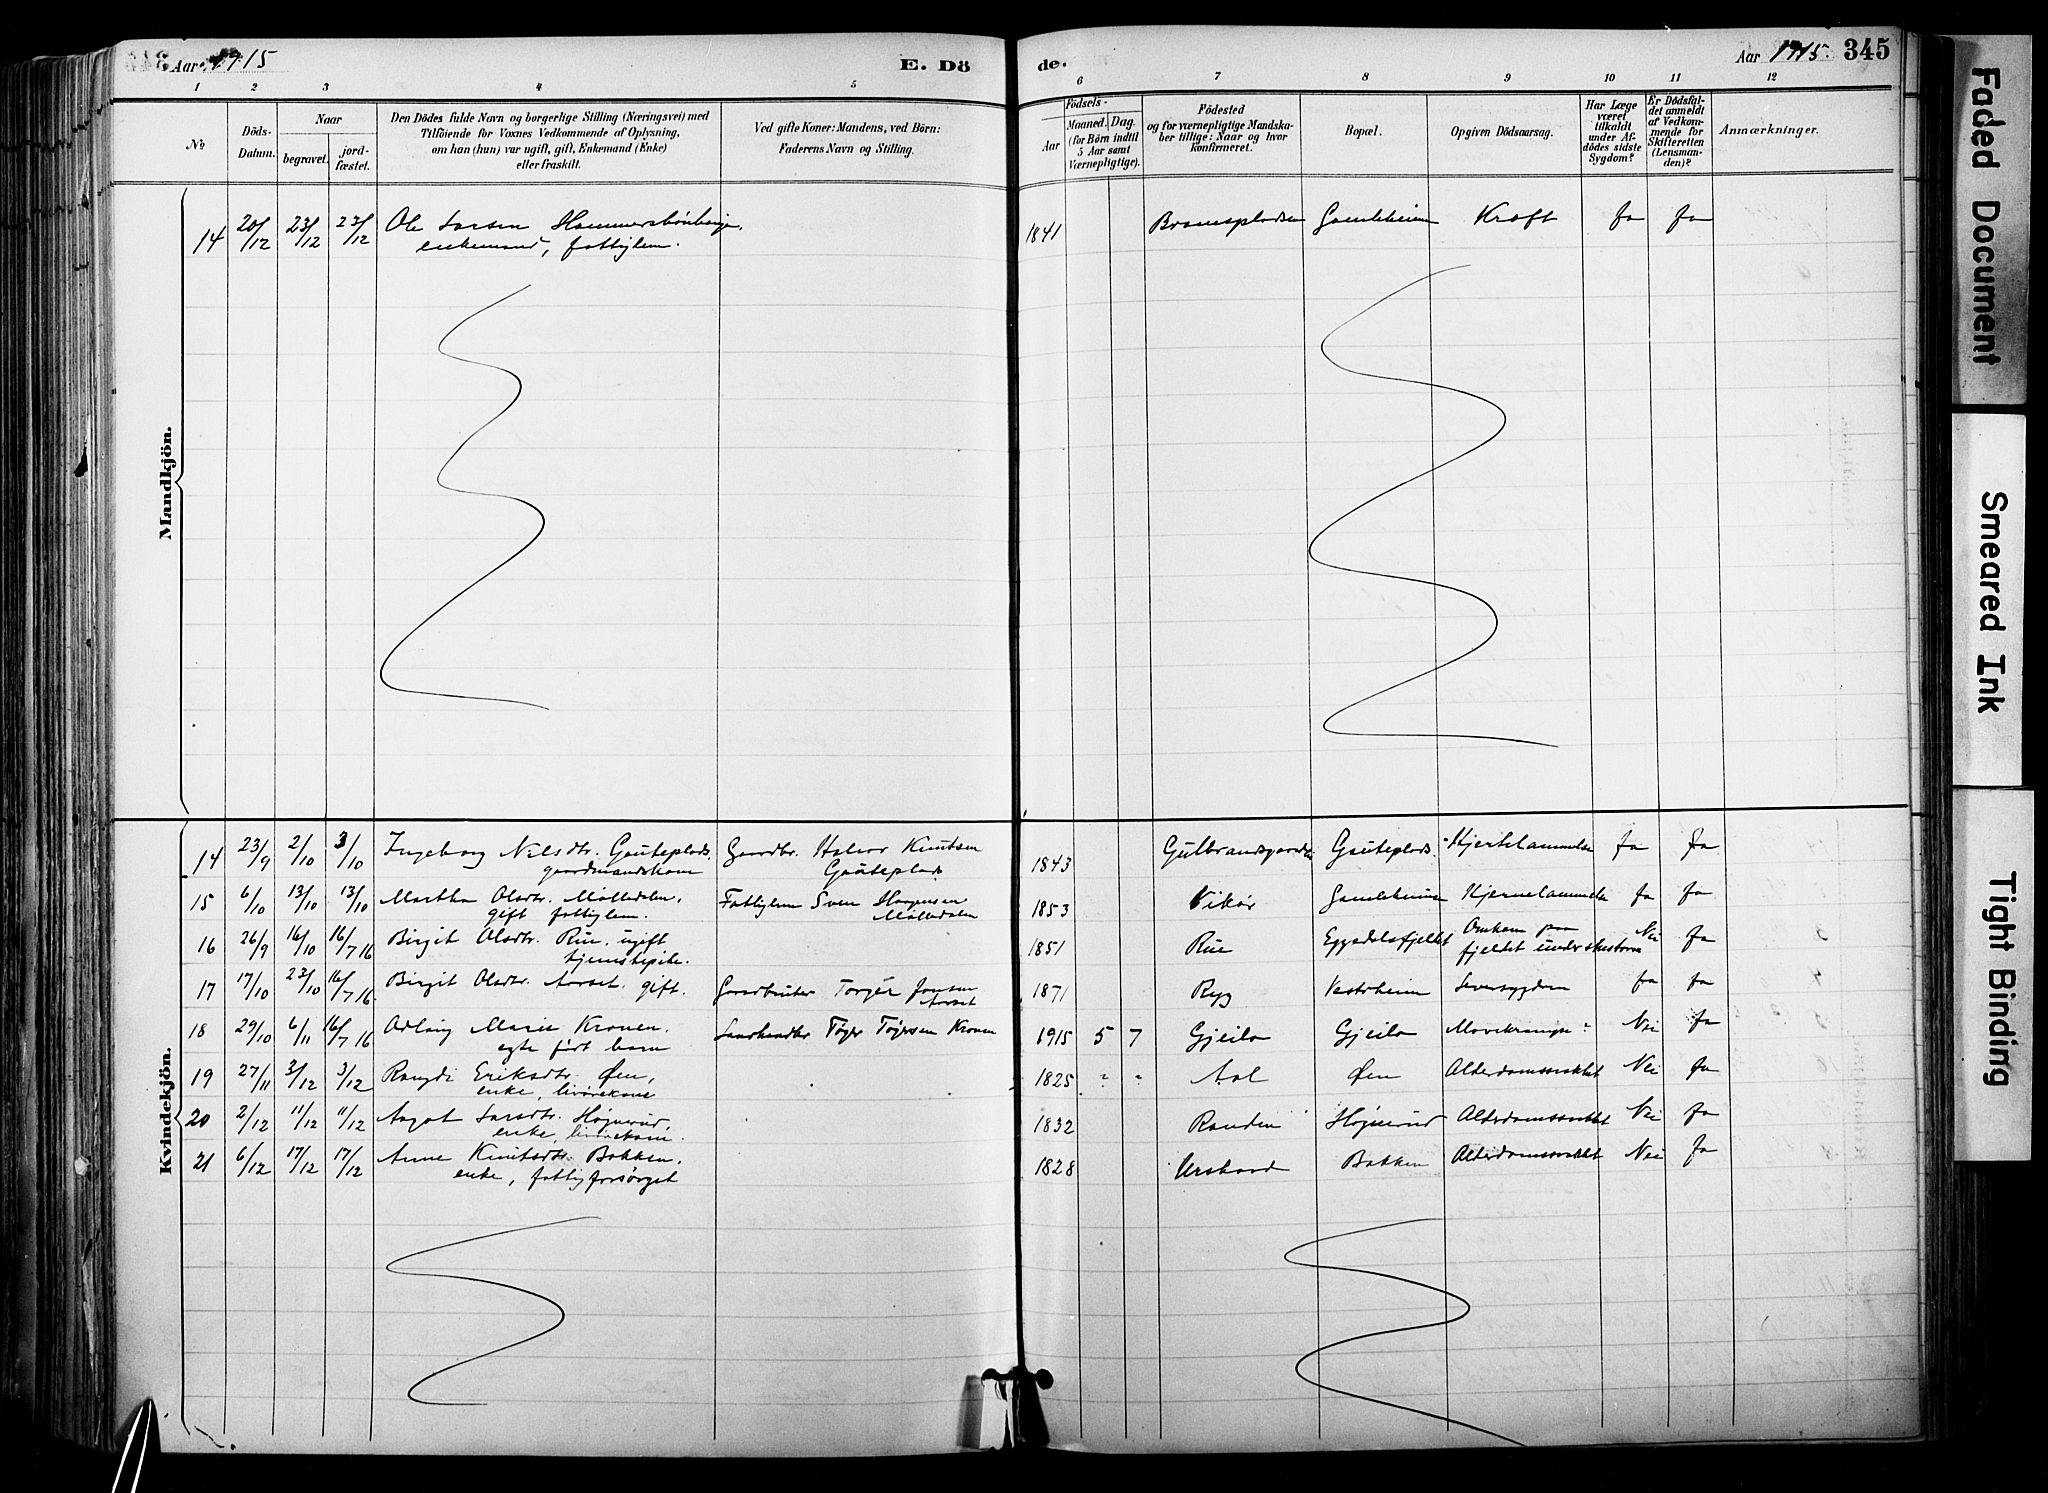 Aar 1915
E. Dö
de.
Aar 1915. 345
1 2 3 4 5 6 7 8 9 10 11 12
No
Döds-Datum.
Naar
begravet.
jord-fæstet.
Den Dödes fulde Navn og borgerlige Stilling (Næringsvei) med
Tilföiende for Voxnes Vedkommende af Oplysning,
om han (hun) var ugift, gift, Enkemand (Enke)
eller fraskilt.
Ved gifte Koner: Mandens, ved Börn:
Faderens Navn og Stilling.
Födsels-
Aar
Maaned. Dag.
(for Börn indtil
5 Aar samt
Værnepligtige).
Födested
og for værnepligtige Mandska-
ber tillige: Naar og hvor
Konfirmeret.
Bopæl.
Opgiven Dödsaarsag.
Har Læge
været
tilkaldt
under Af-
dödes sidste
Sygdom?
Er Dödsfal-
det anmeldt
af Vedkom-
mende for
Skifteretten
(Lensman-
den)?
Anmærkninger.
Mandkjön.
14 20/12 23/12 23/12 Ole Larsen
enkemand, fattiglem.
1841 Gamleheim Kræft Ja Ja
Kvindekjön.
14 23/9 2/10 3/10 Ingeborg Nilsdtr. Gauteplads. Gaardbr. Halvor Knutsen 1843 Gulbrandsgaarden Gauteplads. Hjertelammelse Ja Ja
gaardmandskone Gauteplads
15 6/10 13/10 13/10 Martha Olsdtr. Mölledalen, Fattiglem Sven 1853 Vikör Gamleheimen Hjernelammelse Ja Ja
gift fattiglem. Mölledalen
16 26/9 16/10 16/7 16 Birgit Olsdtr. Rue, ugift 1851 Rue Eggedalsfjeldet Omkom paa Nei Ja
tjenstepike. fjeldet under
17 17/10 23/10 16/7 16 Birgit Olsdtr. Aaset, gift. Gaardbruker Torger Jonsen 1871 Ryg Vestreheim Leversygdom Ja Ja
Aaset
18 29/10 6/11 16/7 16 Adlaug Marie Kronen. Landhandler Tøger Tøgersen Kronen 1915 5 7 Gjeilo Gjeilo Mavekrampe? Nei Ja
egte født barn
19 27/11 3/12 3/12 Rangdi Eriksdtr. Øen, 1825 " " Aal Øen Alderdomssvakhet Nei Ja
enke, livørekone
20 2/12 11/12 11/12 Aagot Larsdtr. Høgnerud, 1832 Randen Høgnerud Alderdomssvakhet Nei Ja
enke, livørekone.
21 6/12 17/12 17/12 Anne Knutsdtr. Bakken, 1828 Bakken Alderdomssvakhet Nei Ja
enke, fattigforsørget
Faded Document
Smeared Ink
Tight Binding